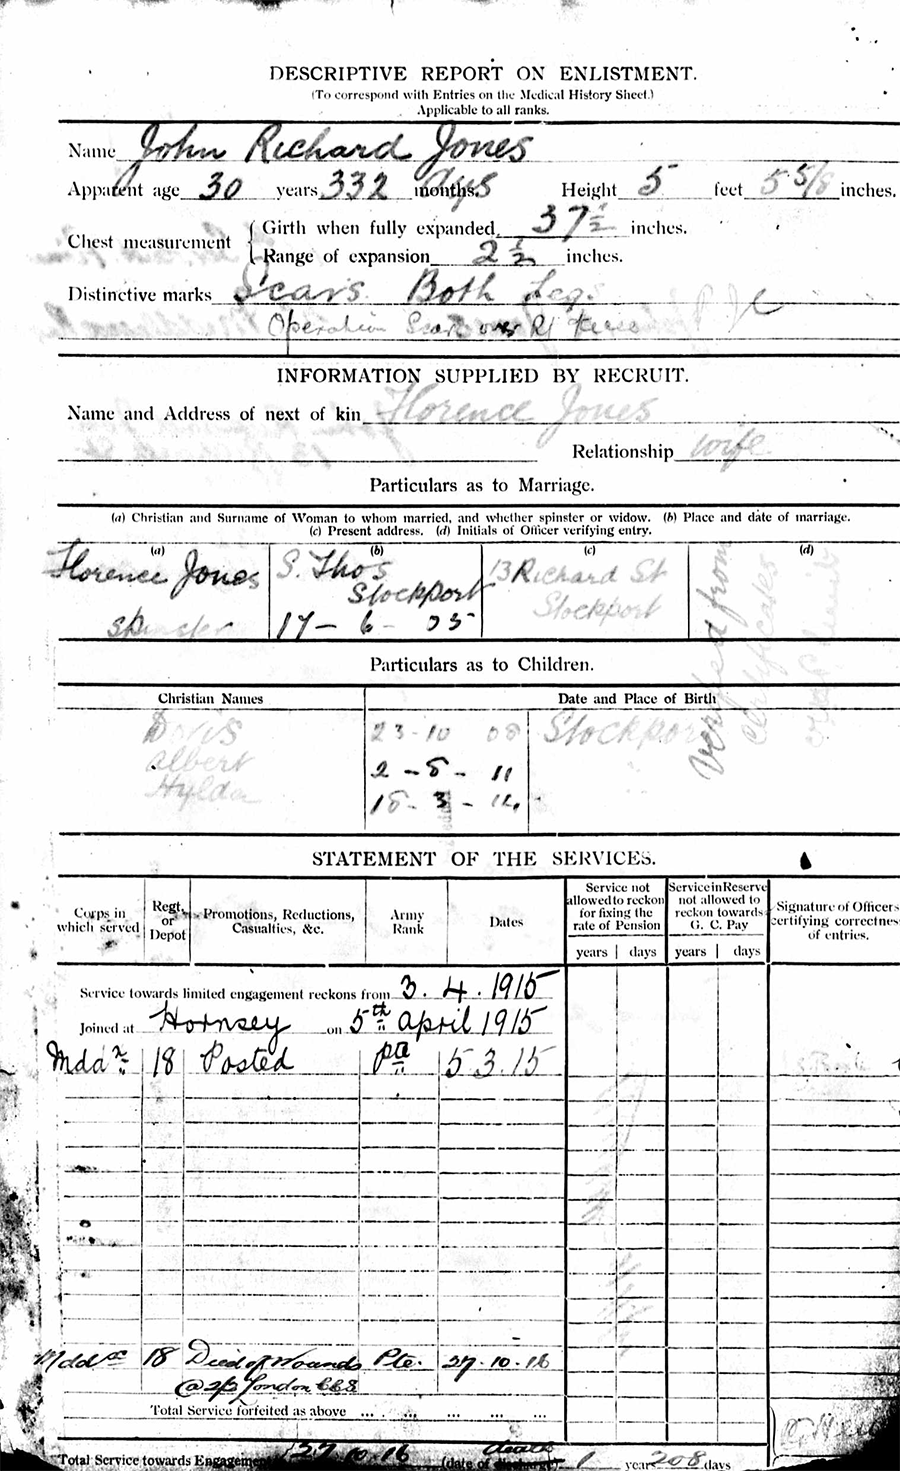 DESCRIPTIVE REPORT ON ENLISTMENT.
(To correspond with Entries on the Medical History Sheet.)
Applicable to all ranks.
Name John Richard Jones
Apparent age 30 years 332 months. dys Height 5 feet 5 5/8 inches.
Chest measurement { Girth when fully expanded 37 1/2 inches.
Range of expansion 2 1/2 inches.
Distinctive marks Scars Both Leg.
Operation Scar over Rt Knee
INFORMATION SUPPLIED BY RECRUIT.
Name and Address of next of kin Florence Jones
Relationship wife
Particulars as to Marriage.
(a) Christian and Surname of Woman to whom married, and whether spinster or widow. (b) Place and date of marriage.
(c) Present address. (d) Initials of Officer verifying entry.
(a) (b) (c) (d)
Florence Jones S. Thos 13 Richard St
Stockport Stockport
spinster 17 - 6 - 05
Verified from
Certificates
Particulars as to Children.
Christian Names Date and Place of Birth
Doris 23-10 08 Stockport
Albert 2 - 8 - 11
Hylda 18 - 3 - 14.
STATEMENT OF THE SERVICES.
Corps in which served
Regt. or Depot
Promotions, Reductions, Casualties, &c.
Army Rank
Dates
Service not allowed to reckon for fixing the rate of Pension
Service in Reserve not allowed to reckon towards G. C. Pay
Signature of Officers certifying correctness of entries.
years days years days
Service towards limited engagement reckons from 3. 4. 1915
Joined at Hornsey on 5th April 1915
Mddx 18 Posted Pte 5 3.15
Mddx 18 Died of Wounds Pte. 27.10.16
@ 2/2 London CCS
Total Service forfeited as above ... ... ... ... ...
Total Service towards Engagement 27 10.16 (date of discharge) death 1 years 208 days